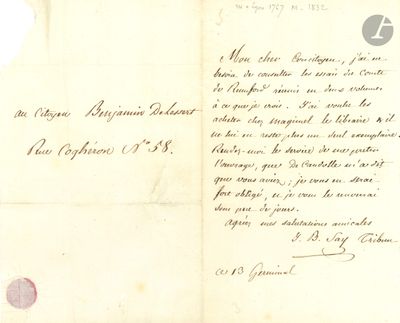 né à Lyon 1767 M. 1832
au Citoyen Benjamin Delessert
Rue Coqhéron N° 58.
Mon cher Concitoyen, j'ai eu
besoin de consulter les essais du Comte
de Rumford réunis en deux volumes
à ce que je crois. J'ai voulu les
acheter chez Magimel le libraire & il
ne lui en reste plus un seul exemplaire.
Rendez-moi le service de me prêter
l'ouvrage, que De Candolle m'a dit
que vous aviez; je vous en serai
fort obligé, & je vous le renverrai
sous peu de jours.
Agréez mes salutations amicales
J. B. Say Tribun
ce 13 Germinal